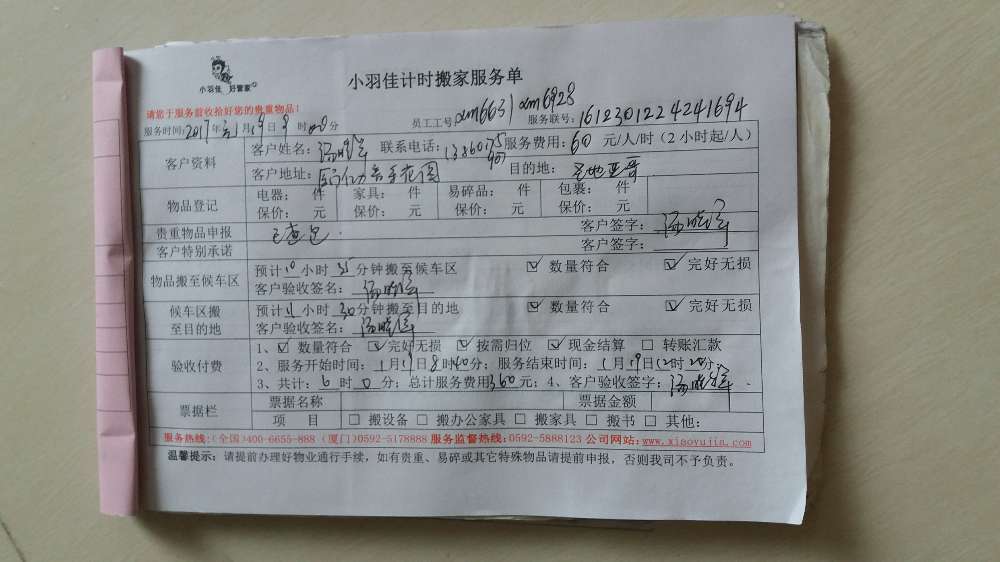 小羽佳 好管家
小羽佳计时搬家服务单
请您于服务前收拾好您的贵重物品!
服务时间:2017年元月19日9时00分
员工工号xm6631 xm6928
服务联号:1612301224241694
客户资料
客户姓名: 联系电话: 服务费用:60元/人/时(2小时起/人)
客户地址: 目的地:圣地亚哥
物品登记
电器: 件 家具: 件 易碎品: 件 包裹: 件
保价: 元 保价: 元 保价: 元 保价: 元
贵重物品申报 已查包. 客户签字:
客户特别承诺 客户签字:
物品搬至候车区
预计 小时35分钟搬至候车区 ☑ 数量符合 ☑ 完好无损
客户验收签名:
候车区搬至目的地
预计 小时30分钟搬至目的地 ☑ 数量符合 ☑ 完好无损
客户验收签名:
验收付费
1、☑ 数量符合 ☑ 完好无损 ☑ 按需归位 ☑ 现金结算 □ 转账汇款
2、服务开始时间:1月19日8时40分;服务结束时间:1月19日12时20分.
3、共计:6时0分;总计服务费用360元;4、客户验收签字:
票据栏
票据名称 票据金额
项 目 □ 搬设备 □ 搬办公家具 □ 搬家具 □ 搬书 □ 其他:
服务热线:(全国)400-6655-888 (厦门)0592-5178888 服务监督热线:0592-5888123 公司网站:www.xiaoyujia.com
温馨提示:请提前办理好物业通行手续,如有贵重、易碎或其它特殊物品请提前申报,否则我司不予负责。